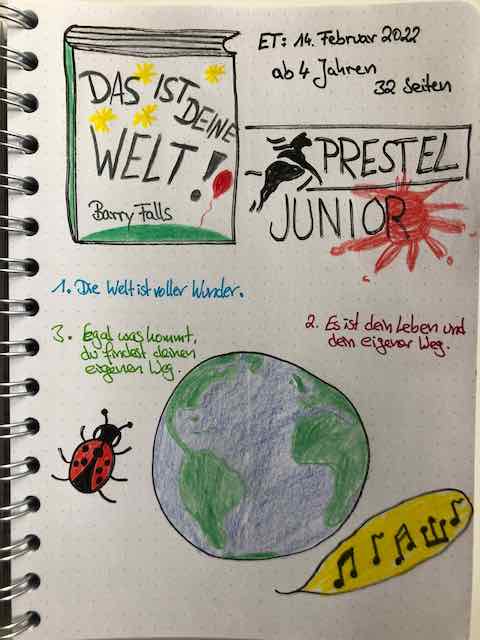 DAS IST
DEINE
WELT!
Barry Falls
ET: 14. Februar 2022
ab 4 Jahren
32 Seiten
PRESTEL
JUNIOR
1. Die Welt ist voller Wunder.
2. Es ist dein Leben und
dein eigener Weg.
3. Egal was kommt,
du findest deinen
eigenen Weg.